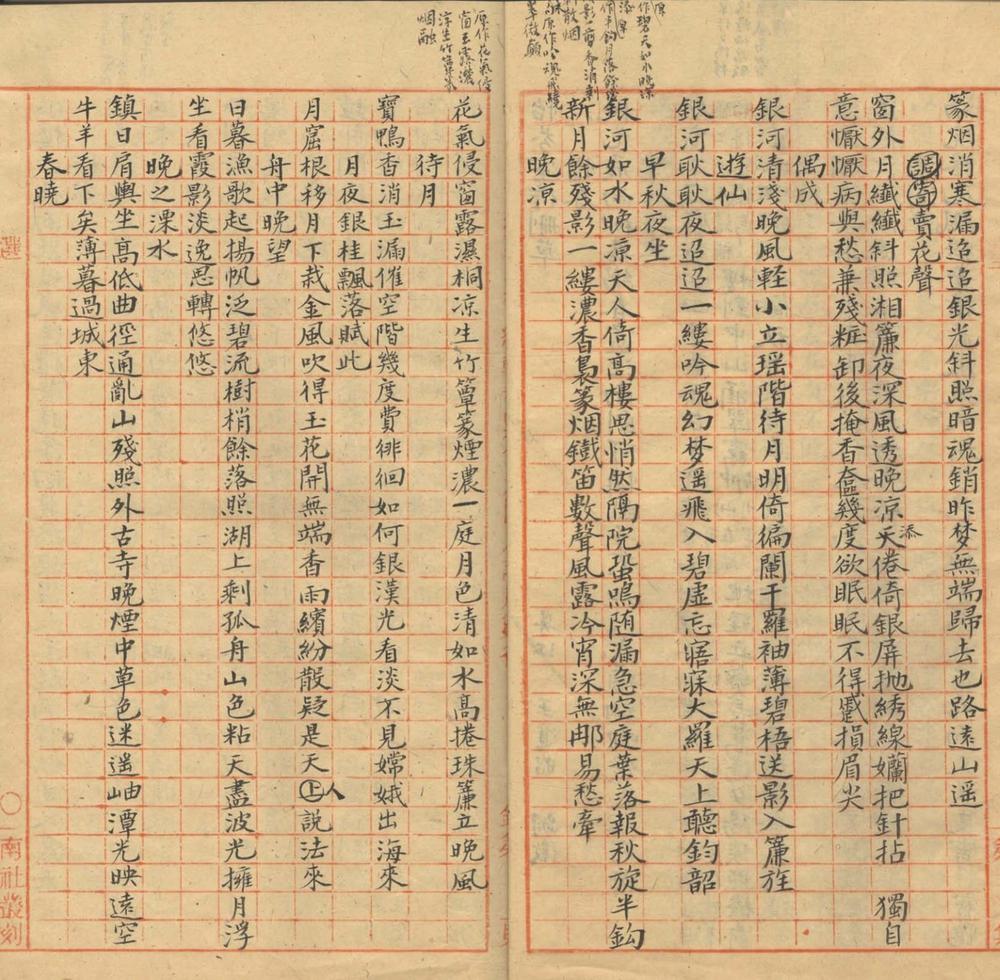 篆烟消寒漏迢迢銀光斜照暗魂銷昨梦無端歸去也路遠山遥
調寄賣花聲
窗外月纖纖斜照湘簾夜深風透晚凉天倦倚銀屏抛綉線嬾把針拈　獨自
添
意懨懨病與愁兼殘粧卸後掩香奩幾度欲眠眠不得蹙損眉尖
偶成
銀河清淺晚風輕小立瑶階待月明倚徧闌干羅袖薄碧梧送影入簾旌
遊仙
銀河耿耿夜迢迢一縷吟魂幻梦遥飛入碧虚忘寤寐大羅天上聽鈞韶
早秋夜坐
銀河如水晚凉天人倚高樓思悄然隔院蛩鳴随漏急空庭葉落報秋旋半鈎
新月餘殘影一縷濃香裊篆烟鐵笛數聲風露冷宵深無那易愁牽
晚凉
花氣侵窗露濕桐凉生竹簟篆煙濃一庭月色清如水高捲珠簾立晚風
待月
寶鴨香消玉漏催空階幾度賞徘徊如何銀漢光看淡不見嫦娥出海來
月夜銀桂飄落賦此
月窟根移月下栽金風吹得玉花開無端香雨繽紛散疑是天上人説法來
舟中晚望
日暮漁歌起揚帆泛碧流樹梢餘落照湖上剩孤舟山色粘天盡波光擁月浮
坐看霞影淡逸思轉悠悠
晚之溧水
鎮日肩輿坐高低曲徑通亂山殘照外古寺晚煙中草色迷遥岫潭光映遠空
牛羊看下矣薄暮過城東
春曉
選
南社叢刻